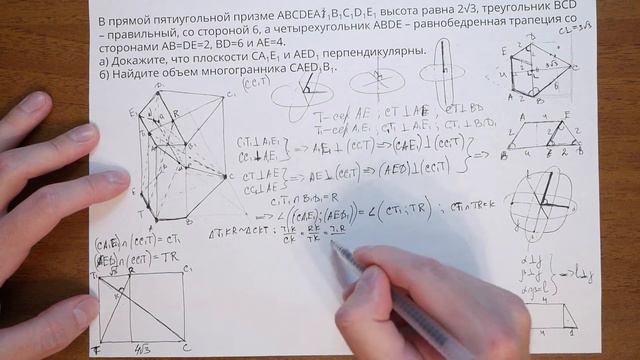 В прямой пятиугольной призме ABCDEA₁B₁C₁D₁E₁ высота равна 2√3, треугольник BCD
– правильный, со стороной 6, а четырехугольник ABDE – равнобедренная трапеция со
сторонами AB=DE=2, BD=6 и AE=4.
а) Докажите, что плоскости CA₁E₁ и AED₁ перпендикулярны.
б) Найдите объем многогранника CAED₁B₁.
CL=3√3
(CC₁T)
T-сер AE ; CT⊥AE ; CT⊥BD
T₁-сер A₁E₁ ; CT₁⊥A₁E₁ ; CT₁⊥B₁D₁
C₁T₁⊥A₁E₁
CC₁⊥A₁E₁ => A₁E₁⊥(CC₁T) => (CA₁E₁)⊥(CC₁T)
CT⊥AE
CC₁⊥AE => AE⊥(CC₁T) => (AED₁)⊥(CC₁T) =>
C₁T₁∩B₁D₁=R
=> ∠((CA₁E₁);(AED₁))=∠(CT₁;TR) ; CT₁∩TR=K
ΔT₁KR~ΔCKT ; T₁K/CK = RK/TK = T₁R/
(CA₁E₁)∩(CC₁T)=CT₁
(AED₁)∩(CC₁T)=TR
T₁ R
K
T 4√3 C
α⊥γ
β⊥γ => l⊥γ
α∩β=l